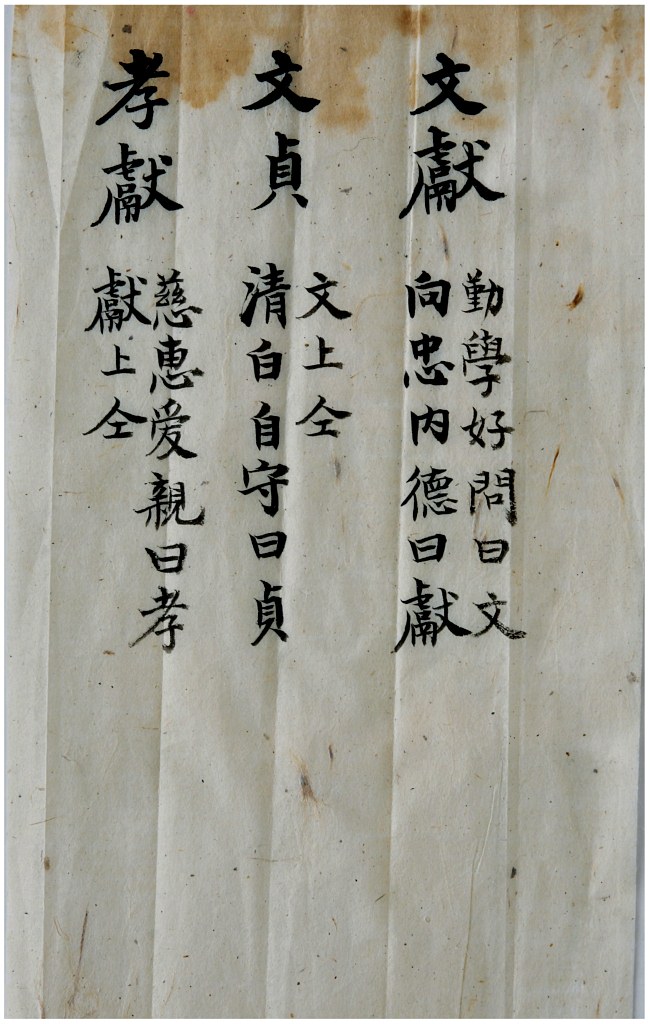 文獻
勤學好問曰文
向忠內德曰獻
文貞
文上仝
清白自守曰貞
孝獻
慈惠爱親曰孝
獻上仝